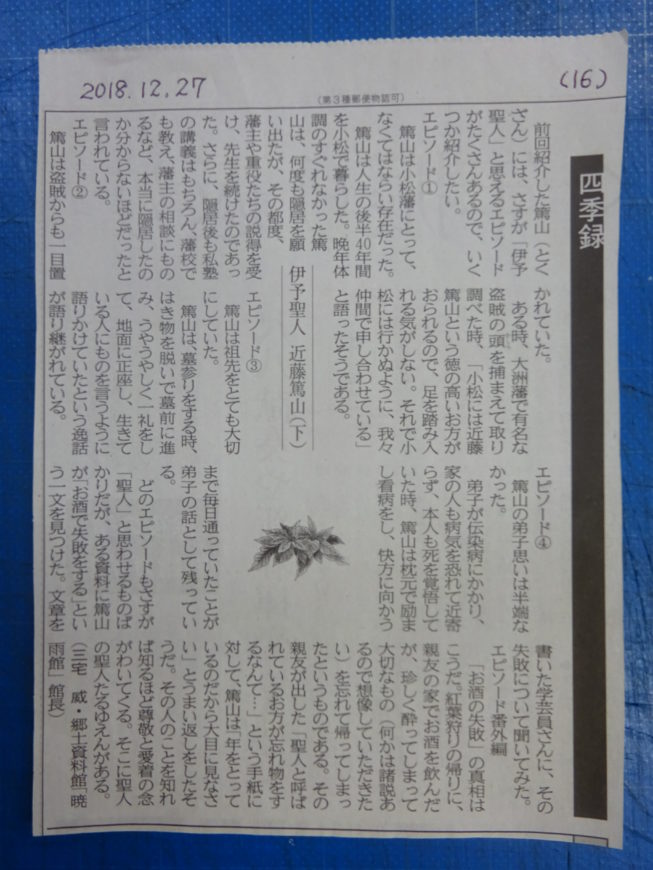 2018.12.27
（第3種郵便物認可）
(16)
四季録
伊予聖人 近藤篤山（下）
前回紹介した篤山（とく
さん）には、さすが「伊予
聖人」と思えるエピソード
がたくさんあるので、いく
つか紹介したい。
エピソード①
篤山は小松藩にとって、
なくてはならない存在だった。
篤山は人生の後半40年間
を小松で暮らした。晩年体
調のすぐれなかった篤
山は、何度も隠居を願
い出たが、その都度、
藩主や重役たちの説得を受
け、先生を続けたのであっ
た。さらに、隠居後も私塾
の講義はもちろん、藩校で
も教え、藩主の相談にもの
るなど、本当に隠居したの
か分からないほどだったと
言われている。
エピソード②
篤山は盗賊からも一目置
かれていた。
ある時、大洲藩で有名な
盗賊の頭を捕まえて取り
調べた時、「小松には近藤
篤山という徳の高いお方が
おられるので、足を踏み入
れる気がしない。それで小
松には行かぬように、我々
仲間で申し合わせている」
と語ったそうである。
エピソード③
篤山は祖先をとても大切
にしていた。
篤山は、墓参りをする時、
はき物を脱いで墓前に進
み、うやうやしく一礼をし
て、地面に正座し、生きて
いる人にものを言うように
語りかけていたという逸話
が語り継がれている。
エピソード④
篤山の弟子思いは半端な
かった。
弟子が伝染病にかかり、
家の人も病気を恐れて近寄
らず、本人も死を覚悟して
いた時、篤山は枕元で励ま
し看病をし、快方に向かう
まで毎日通っていたことが
弟子の話として残ってい
る。
どのエピソードもさすが
「聖人」と思わせるものば
かりだが、ある資料に篤山
が「お酒で失敗をする」とい
う一文を見つけた。文章を
書いた学芸員さんに、その
失敗について聞いてみた。
エピソード番外編
「お酒の失敗」の真相は
こうだ。紅葉狩りの帰りに、
親友の家でお酒を飲んだ
が、珍しく酔ってしまって
大切なもの（何かは諸説あ
るので想像していただきた
い）を忘れて帰ってしまっ
たというものである。その
親友が出した「聖人と呼ば
れているお方が忘れ物をす
るなんて…」という手紙に
対して、篤山は「年をとって
いるのだから大目に見なさ
い」とうまい返しをしたそ
うだ。その人のことを知れ
ば知るほど尊敬と愛着の念
がわいてくる。そこに聖人
の聖人たるゆえんがある。
（三宅　威・郷土資料館「暁
雨館」館長）